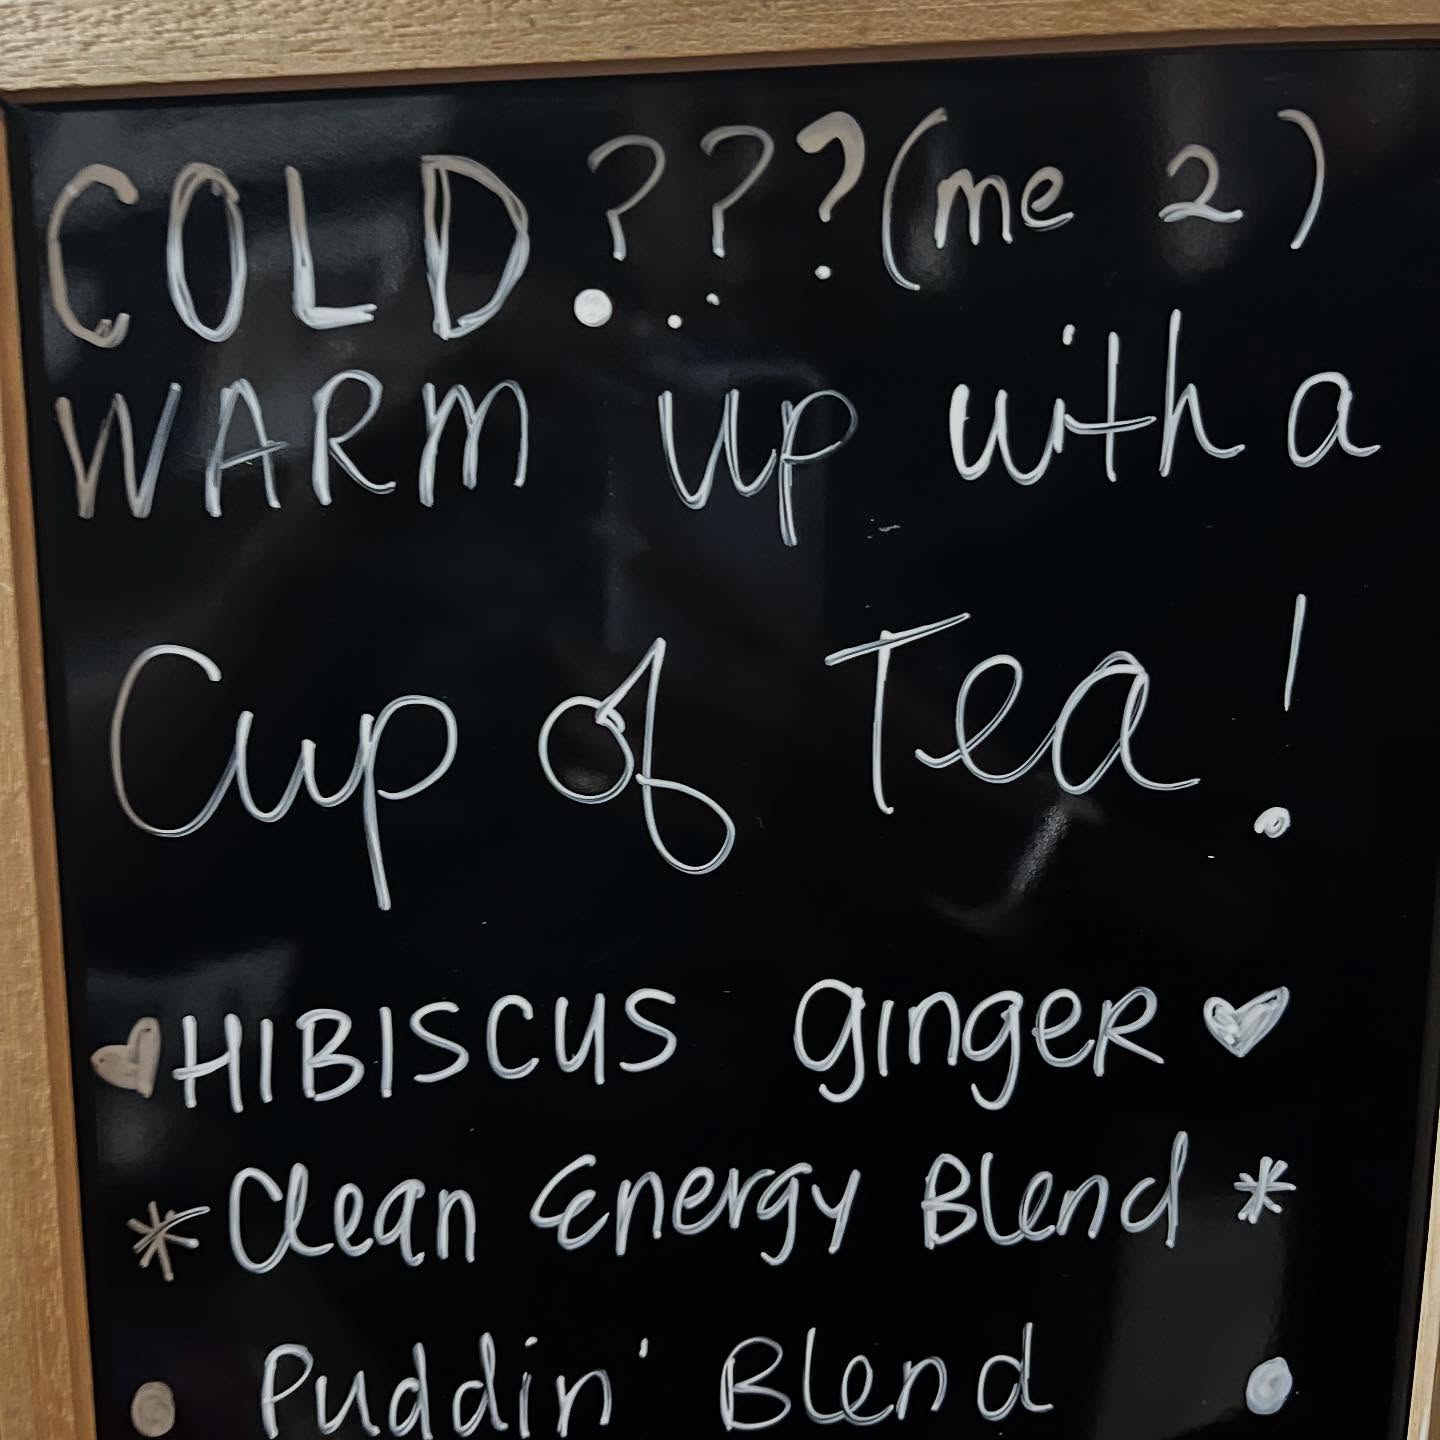 COLD???(me 2)
WARM up with a
Cup of Tea!
HIBISCUS ginger
Clean Energy Blend
Puddin' Blend